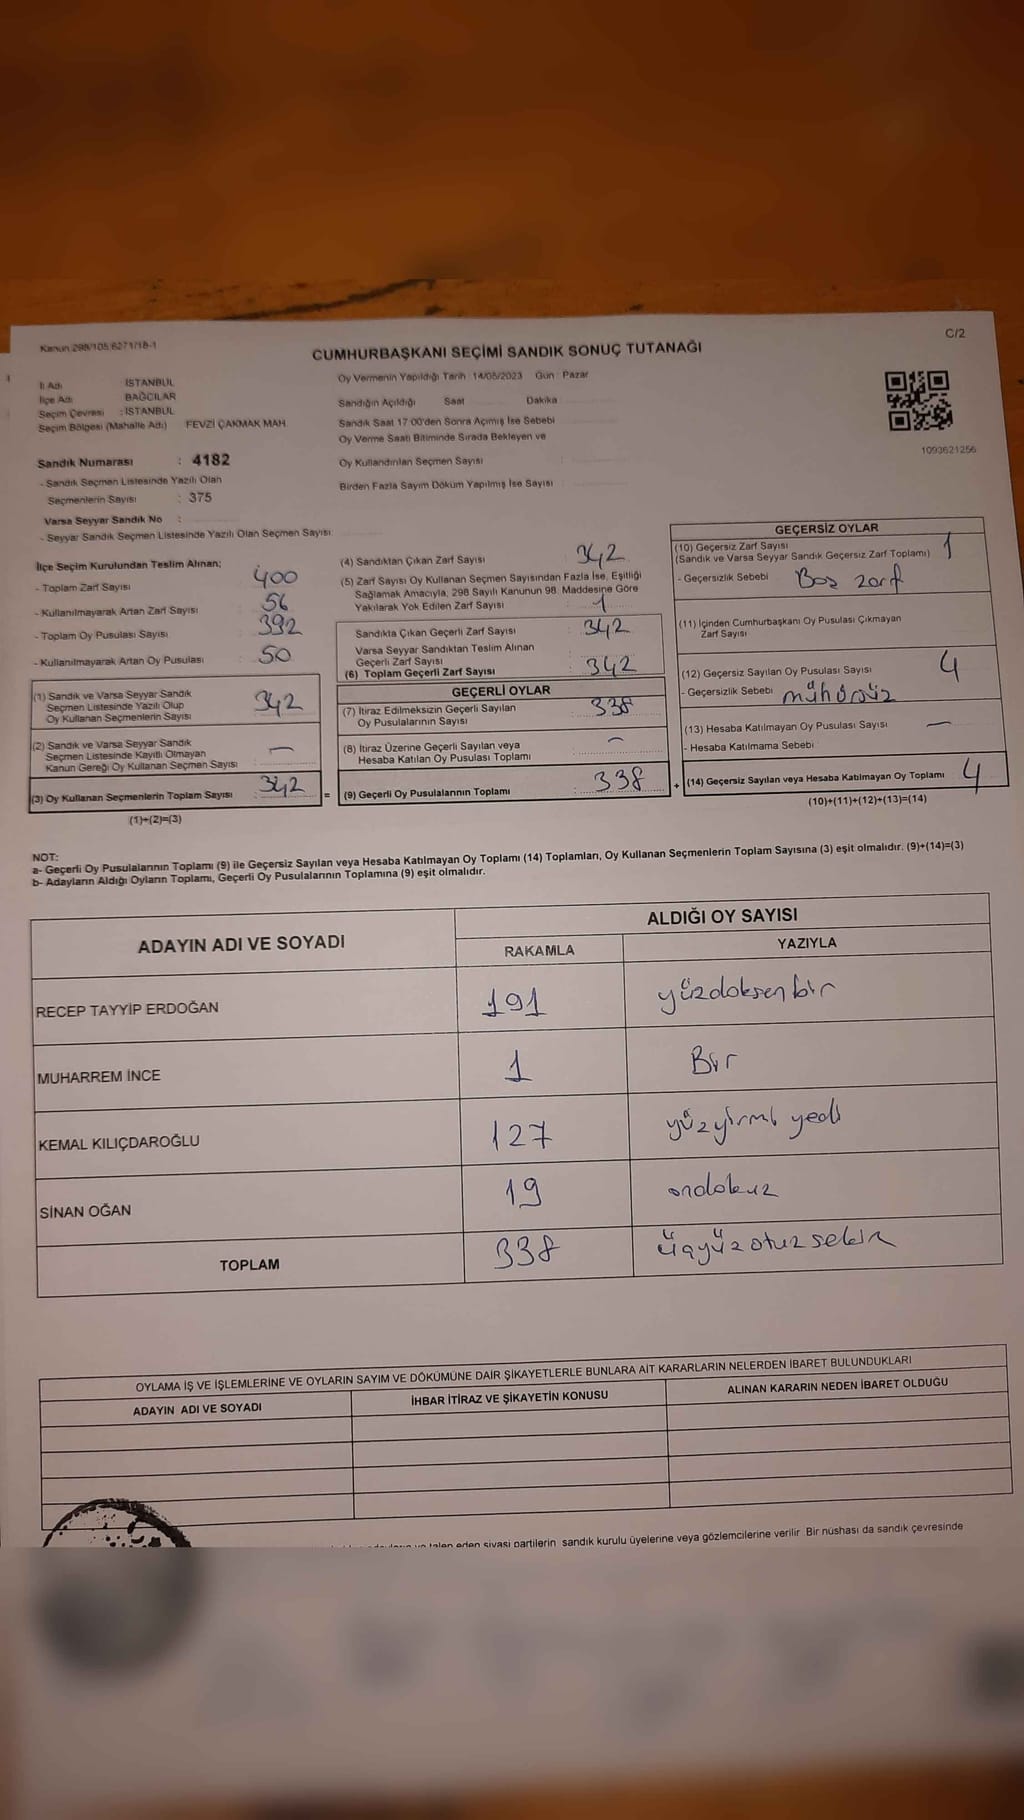 Kanun:298/105;6271/18-1
C/2
CUMHURBAŞKANI SEÇİMİ SANDIK SONUÇ TUTANAĞI
İl Adı İSTANBUL
İlçe Adı BAĞCILAR
Seçim Çevresi : İSTANBUL
Seçim Bölgesi (Mahalle Adı) FEVZİ ÇAKMAK MAH.
Oy Vermenin Yapıldığı Tarih : 14/05/2023 Gün : Pazar
Sandığın Açıldığı Saat Dakika
Sandık Saat 17:00'den Sonra Açımış İse Sebebi
Oy Verme Saati Bitiminde Sırada Bekleyen ve
Oy Kullandırılan Seçmen Sayısı :
Birden Fazla Sayım Döküm Yapılmış İse Sayısı :
1093621256
Sandık Numarası : 4182
- Sandık Seçmen Listesinde Yazılı Olan
Seçmenlerin Sayısı : 375
Varsa Seyyar Sandık No :
- Seyyar Sandık Seçmen Listesinde Yazılı Olan Seçmen Sayısı:
İlçe Seçim Kurulundan Teslim Alınan;
- Toplam Zarf Sayısı : 400
- Kullanılmayarak Artan Zarf Sayısı : 56
- Toplam Oy Pusulası Sayısı : 392
- Kullanılmayarak Artan Oy Pusulası : 50
(1) Sandık ve Varsa Seyyar Sandık
Seçmen Listesinde Yazılı Olup
Oy Kullanan Seçmenlerin Sayısı : 342
(2) Sandık ve Varsa Seyyar Sandık
Seçmen Listesinde Kayıtlı Olmayan
Kanun Gereği Oy Kullanan Seçmen Sayısı : —
(3) Oy Kullanan Seçmenlerin Toplam Sayısı : 342
(1)+(2)=(3)
(4) Sandıktan Çıkan Zarf Sayısı : 342
(5) Zarf Sayısı Oy Kullanan Seçmen Sayısından Fazla İse, Eşitliği
Sağlamak Amacıyla, 298 Sayılı Kanunun 98. Maddesine Göre
Yakılarak Yok Edilen Zarf Sayısı : 1
Sandıkta Çıkan Geçerli Zarf Sayısı : 342
Varsa Seyyar Sandıktan Teslim Alınan
Geçerli Zarf Sayısı
(6) Toplam Geçerli Zarf Sayısı : 342
GEÇERLİ OYLAR
(7) İtiraz Edilmeksizin Geçerli Sayılan
Oy Pusulalarının Sayısı : 338
(8) İtiraz Üzerine Geçerli Sayılan veya
Hesaba Katılan Oy Pusulası Toplamı : —
= (9) Geçerli Oy Pusulalarının Toplamı : 338
GEÇERSİZ OYLAR
(10) Geçersiz Zarf Sayısı
(Sandık ve Varsa Seyyar Sandık Geçersiz Zarf Toplamı) : 1
- Geçersizlik Sebebi : Boş zarf
(11) İçinden Cumhurbaşkanı Oy Pusulası Çıkmayan
Zarf Sayısı
(12) Geçersiz Sayılan Oy Pusulası Sayısı : 4
- Geçersizlik Sebebi : mühürsüz
(13) Hesaba Katılmayan Oy Pusulası Sayısı : —
- Hesaba Katılmama Sebebi :
+ (14) Geçersiz Sayılan veya Hesaba Katılmayan Oy Toplamı : 4
(10)+(11)+(12)+(13)=(14)
NOT:
a- Geçerli Oy Pusulalarının Toplamı (9) ile Geçersiz Sayılan veya Hesaba Katılmayan Oy Toplamı (14) Toplamları, Oy Kullanan Seçmenlerin Toplam Sayısına (3) eşit olmalıdır. (9)+(14)=(3)
b- Adayların Aldığı Oyların Toplamı, Geçerli Oy Pusulalarının Toplamına (9) eşit olmalıdır.
ADAYIN ADI VE SOYADI
ALDIĞI OY SAYISI
RAKAMLA YAZIYLA
RECEP TAYYİP ERDOĞAN 191 yüzdoksenbir
MUHARREM İNCE 1 Bir
KEMAL KILIÇDAROĞLU 127 yüzyirmi yedi
SİNAN OĞAN 19 ondokuz
TOPLAM 338 üçyüzotuzsekiz
OYLAMA İŞ VE İŞLEMLERİNE VE OYLARIN SAYIM VE DÖKÜMÜNE DAİR ŞİKAYETLERLE BUNLARA AİT KARARLARIN NELERDEN İBARET BULUNDUKLARI
ADAYIN ADI VE SOYADI İHBAR İTİRAZ VE ŞİKAYETİN KONUSU ALINAN KARARIN NEDEN İBARET OLDUĞU
talep eden siyasi partilerin sandık kurulu üyelerine veya gözlemcilerine verilir Bir nüshası da sandık çevresinde